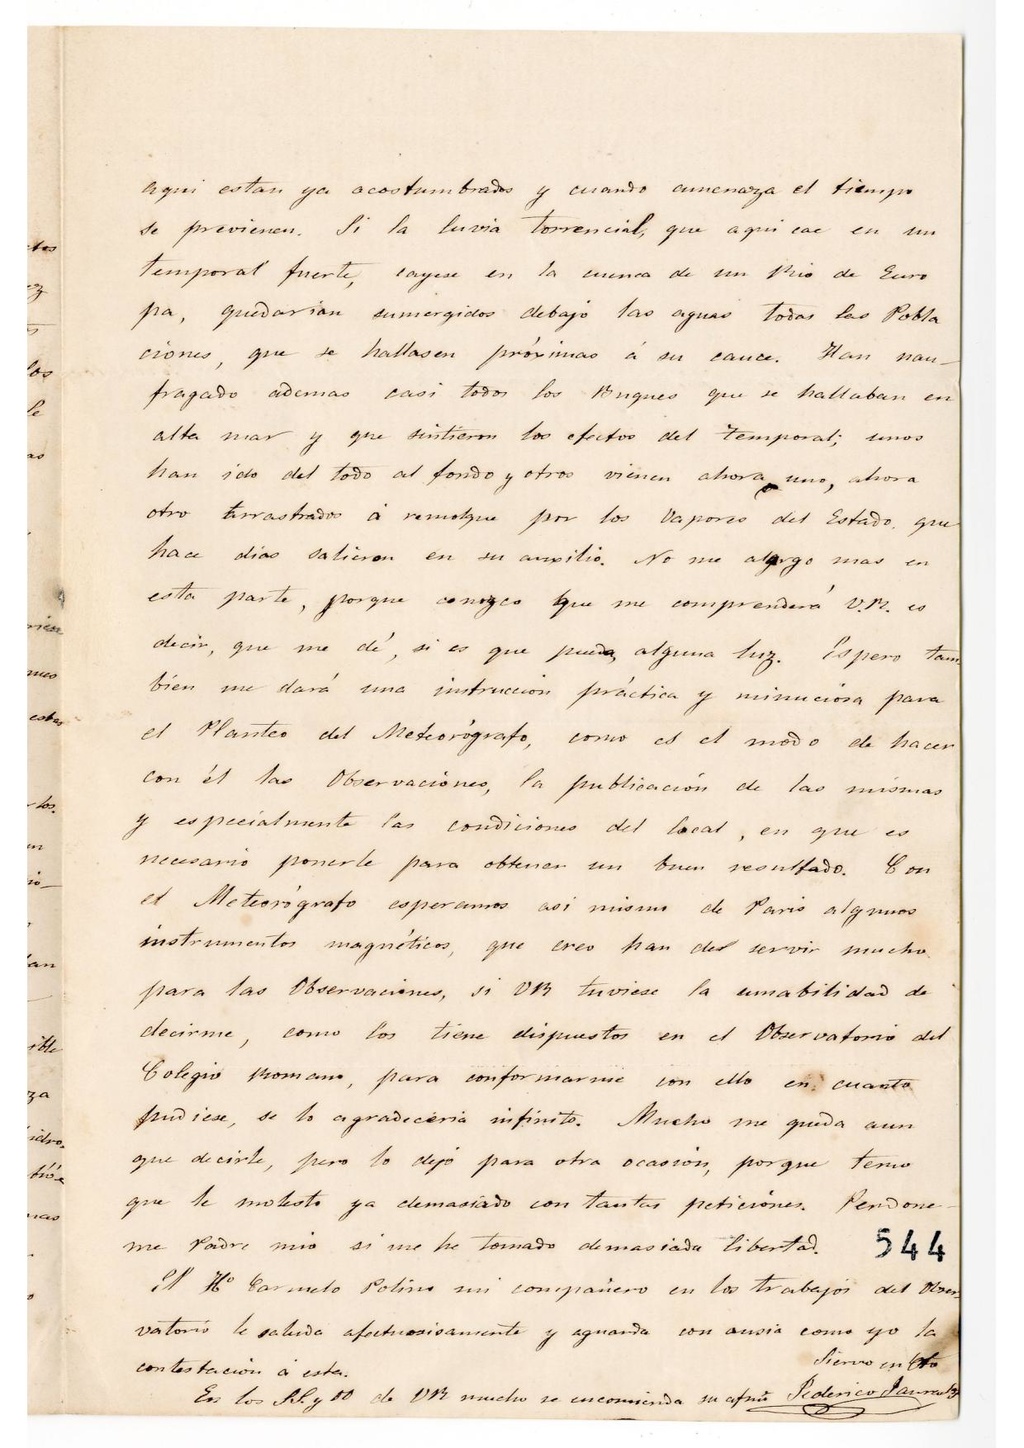 aqui estan ya acostumbrados y cuando amenaza el tiempo
se previenen. Si la luvia torrencial, que aqui cae en un
temporal fuerte, cayese en la cuenca de un Rio de Euro
pa, quedarian sumergidos debajo las aguas todas las Pobla
ciones, que se hallasen próximas á su cauce. Han nau-
fragado ademas casi todos los Buques que se hallaban en
alta mar y que sintieron los efectos del temporal; unos
han ido del todo al fondo y otros vienen ahora uno, ahora
otro arrastrados á remolque por los Vapores del Estado, que
hace dias salieron en su auxilio. No me alargo mas en
esta parte, porque conozco que me comprenderá V.R. es
decir, que me dé, si es que pueda, alguna luz. Espero tam
bién me dará una instrucción práctica y minuciosa para
el Planteo del Meteorógrafo, como es el modo de hacer
con él las Observaciones, la publicación de las mismas
y especialmente las condiciones del local, en que es
necesario ponerle para obtener un buen resultado. Con
el Meteorógrafo esperamos asi mismo de Paris algunos
instrumentos magnéticos, que creo han de servir mucho
para las Observaciones, si VR tuviese la amabilidad de
decirme, como los tiene dispuestos en el Observatorio del
Colegio Romano, para conformarme con ello en cuanto
pudiese, se lo agradeceria infinito. Mucho me queda aun
que decirle, pero lo dejo para otra ocasión, porque temo
que le molesto ya demasiado con tantas peticiones. Perdone-
me Padre mio si me he tomado demasiada libertad. 544
El Hº Carmelo Polino mi compañero en los trabajos del Obser-
vatorio le saluda afectuosisamente y aguarda con ansia como yo la
contestación á esta. Siervo en Cto
En los SS. y OO de VR mucho se encomienda su afmo Federico Faura